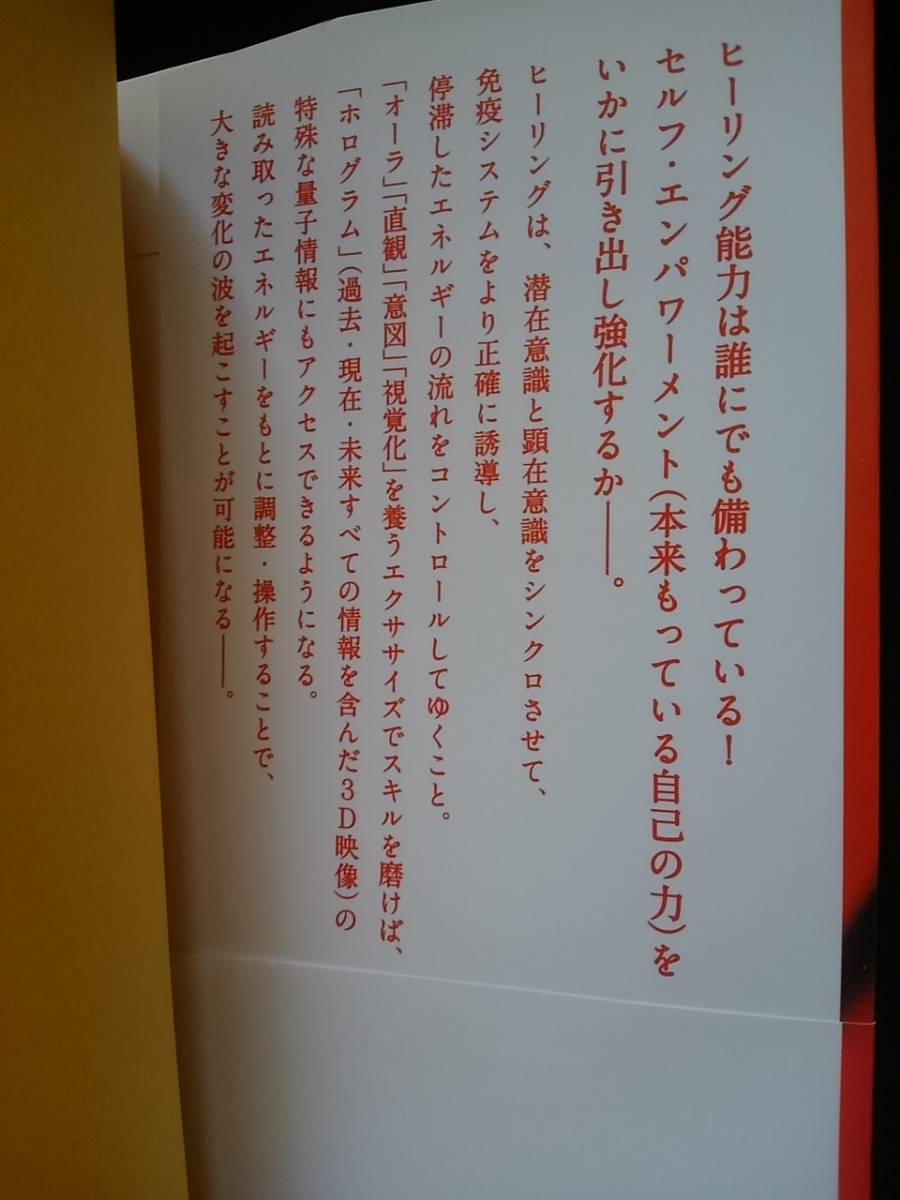 ヒーリング能力は誰にでも備わっている！
セルフ・エンパワーメント（本来もっている自己の力）を
いかに引き出し強化するか――。
ヒーリングは、潜在意識と顕在意識をシンクロさせて、
免疫システムをより正確に誘導し、
停滞したエネルギーの流れをコントロールしてゆくこと。
「オーラ」「直観」「意図」「視覚化」を養うエクササイズでスキルを磨けば、
「ホログラム」（過去・現在・未来すべての情報を含んだ３Ｄ映像）の
特殊な量子情報にもアクセスできるようになる。
読み取ったエネルギーをもとに調整・操作することで、
大きな変化の波を起こすことが可能になる――。